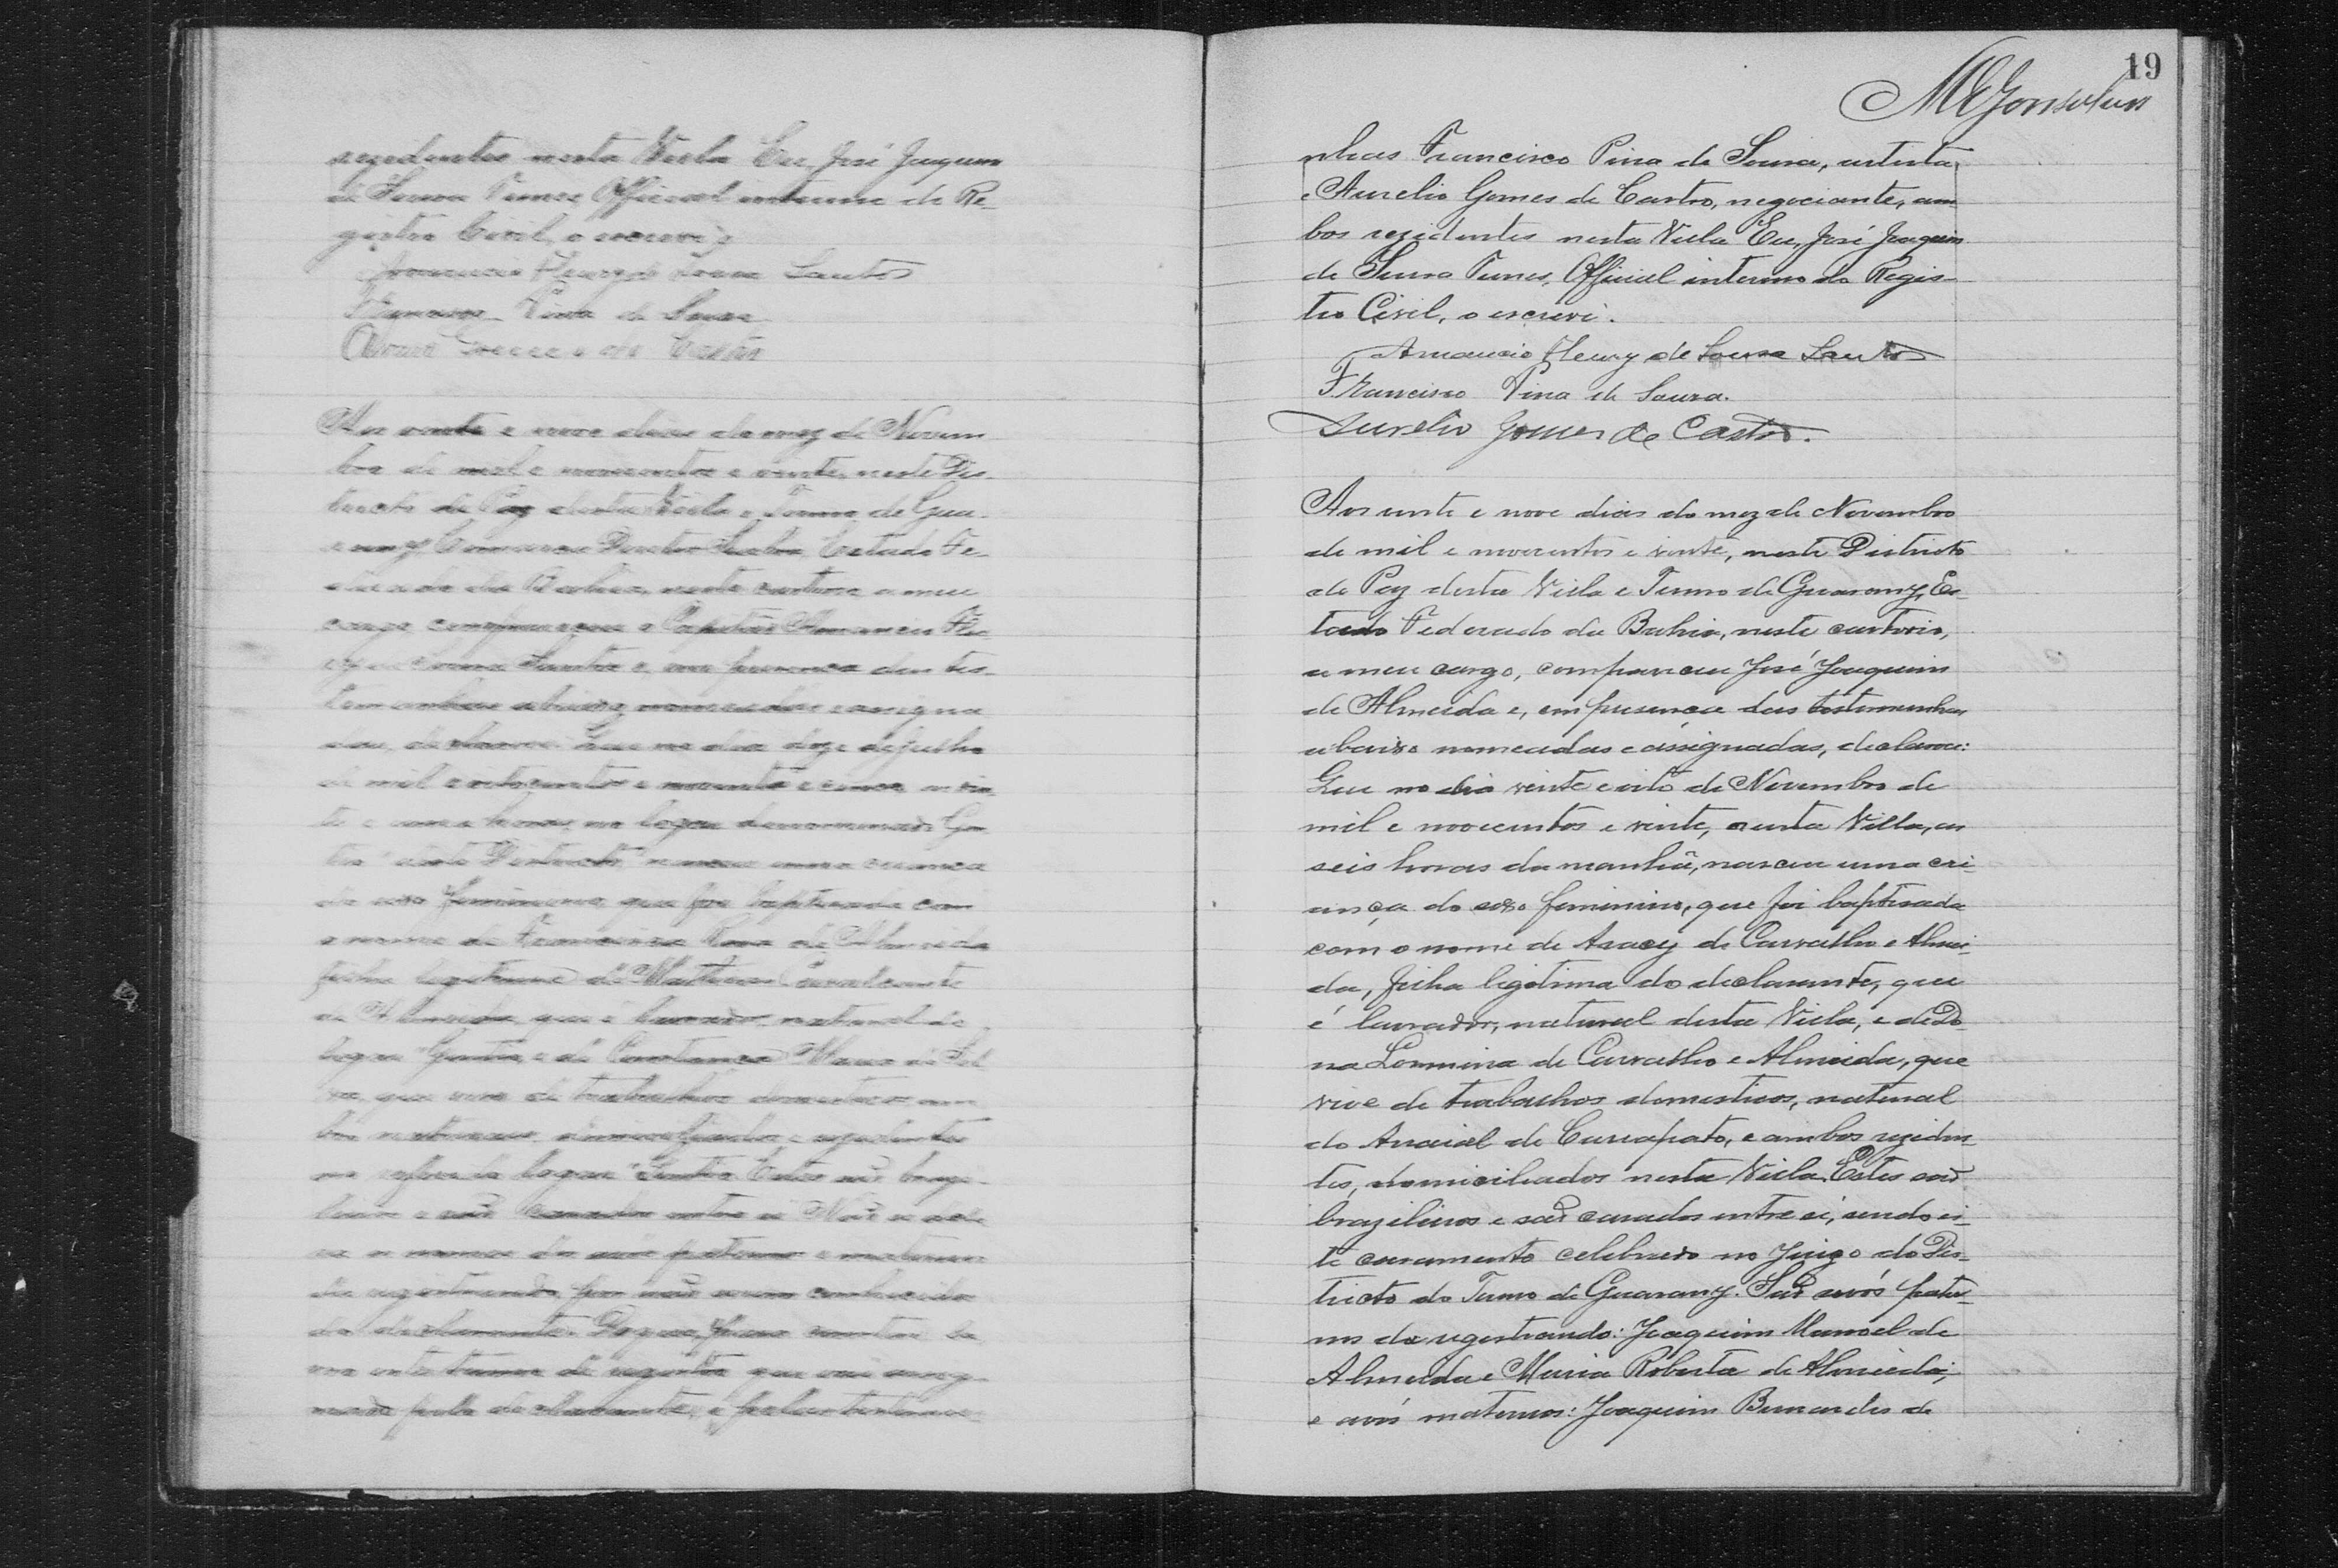 rezidentes nesta Villa Eu, José Joaquim
de Sousa Nunes Official interino do Re-
gistro Civil, o escrevi
Amancio Fleury de Sousa Santos
Pina de Sousa
de Castro
Aos vinte e nove dias do mez de Novem
bro de mil e novecentos e vinte, neste Dis-
tricto de Paz desta Villa e Termo de Gua-
rany, Comarca Estado Fe-
derado da Bahia, neste cartorio a meu
cargo compareceu o Capitão Amancio Fleu
ry de Sousa Santos e, em presença das tes-
temunhas abaixo nomeadas e assigna
das, declarou: Que no dia doze de Julho
de mil e oitocentos e noventa e cinco, as vin
te e uma horas, no logar denominado
deste Districto nasceu uma criança
do sexo feminino que foi baptisada com
o nome de Francisca de Almeida
filha legitima de Cavalcante
de Almeida, que é lavrador, natural do
logar e de Constança Maria da Sil
va, que vive de trabalhos domesticos am
bos naturaes, domiciliados e rezidentes
no referido logar Estes são brazi-
leiros e são casados entre si Não se decla
ra os nomes dos avós paternos e maternos
da registrando, por não serem conhecidos
do declarante. Do que, para constar la
vro este termo de registro que vai assig-
nado pelo declarante, e pelas testemu-
19
MGonsalves
nhas Francisco Pina de Sousa, artista,
e Aurelio Gomes de Castro, negociante, am
bos rezidentes nesta Villa Eu, José Joaquim
de Sousa Nunes, Official interino do Regis-
tro Civil, o escrevi.
Amancio Fleury de Sousa Santos
Francisco Pina de Sousa.
Aurelio Gomes de Castro.
Aos vinte e nove dias do mez de Novembro
de mil e novecentos e vinte, neste Districto
de Paz desta Villa e Termo de Guarany, Es-
tado Federado da Bahia, neste cartorio,
a meu cargo, compareceu José Joaquim
de Almeida e, em presença das testemunhas
abaixo nomeadas e assignadas, declarou:
Que no dia vinte e oito de Novembro de
mil e novecentos e vinte, nesta Villa, as
seis horas da manhã, nasceu uma cri-
ança do sexo feminino, que foi baptisada
com o nome de Aracy de Carvalho e Almei-
da, filha legitima do declarante, que
é lavrador, natural desta Villa, e de Do-
na Lormina de Carvalho e Almeida, que
vive de trabalhos domesticos, natural
do Arraial de Currapato, e ambos reziden-
tes, domiciliados nesta Villa. Estes são
brazileiros e são casados entre si, sendo es-
te casamento celebrado no Juizo do Dis-
tricto do Termo de Guarany. São avós pater-
nos da registrando: Joaquim Manoel de
Almeida e Maria Roberta de Almeida;
e avós maternos: Joaquim Bernardes de